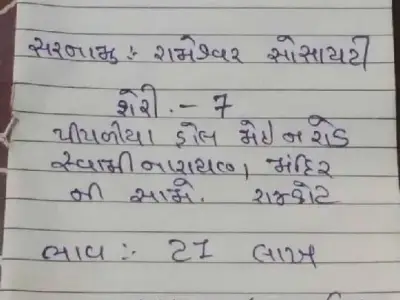 સરનામુ :- રામેશ્વર સોસાયટી
શેરી. - 7
પીપળીયા હોલ મેઇન રોડ
સ્વામીનારાયણ મંદિર
ની સામે. રાજકોટ
ભાવ :- 21 લાખ